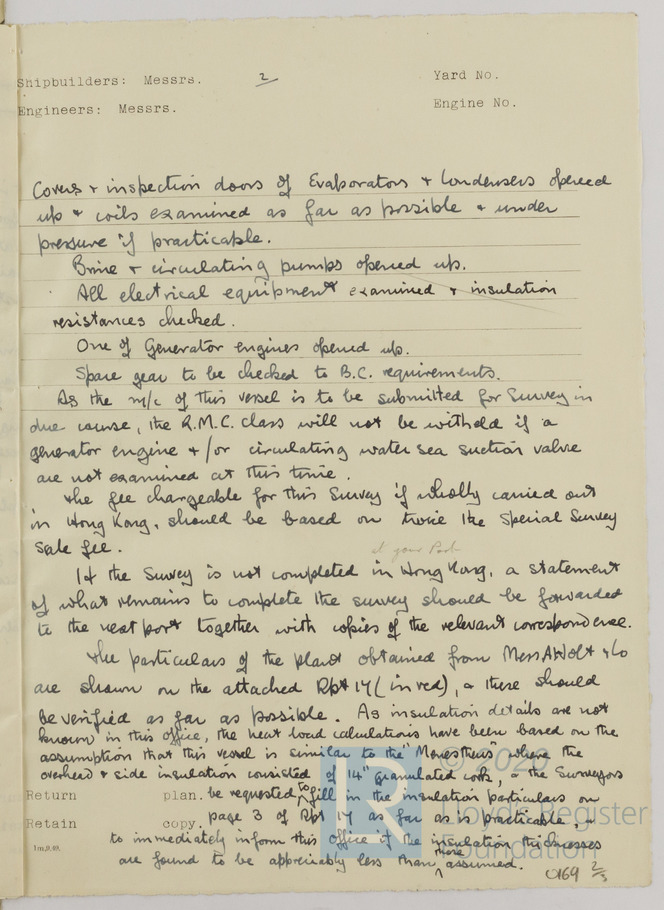 Shipbuilders: Messrs. 2 Yard No.
Engineers: Messrs. Engine No.
Covers & inspection doors of Evaporators & Condensers opened
up & coils examined as far as possible & under
pressure if practicable.
Brine & circulating pumps opened up.
All electrical equipment examined & insulation
resistances checked.
One of Generator engines opened up.
Spare gear to be checked to B.C. requirements.
As the m/c of this vessel is to be submitted for Survey in
due course, the R.M.C. class will not be witheld if a
generator engine & /or circulating water sea suction valve
are not examined at this time.
The fee chargeable for this Survey if wholly carried out
in Hong Kong, should be based on twice the Special Survey
Scale fee.
at your Port
If the Survey is not completed in Hong Kong, a statement
of what remains to complete the survey should be forwarded
to the next port together with copies of the relevant correspondence.
The particulars of the plant obtained from Mess A Holt & Co
are shown on the attached Rpt 17 (in red), & these should
be verified as far as possible. As insulation details are not
known in this office, the heat load calculations have been based on the
assumption that this vessel is similar to the "Menestheus" where the
overhead & side insulation consisted of 14" granulated cork, & the Surveyors
Return plan. be requested to fill in the insulation particulars on
Retain copy. page 3 of Rpt 17 as far as is practicable, &
1m,9,49. to immediately inform this office if the insulation thicknesses
are found to be appreciably less than those assumed.
0169 2/3
© 2020
Lloyd's Register
Foundation